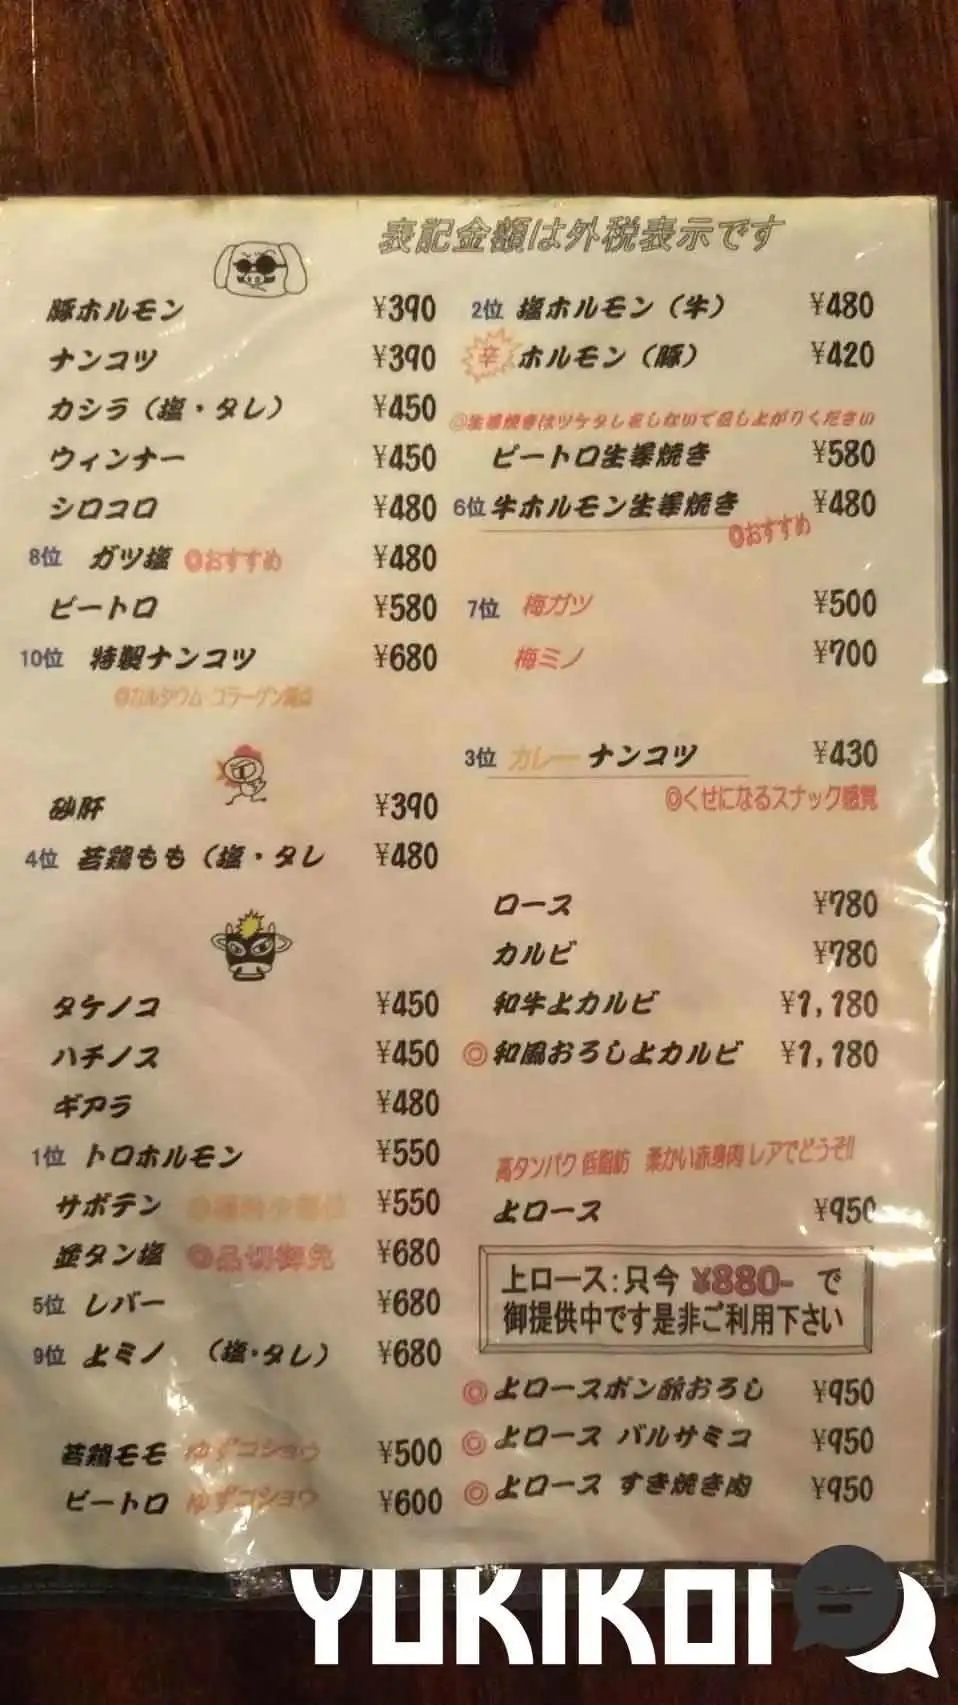 表記金額は外税表示です
豚ホルモン ¥390
ナンコツ ¥390
カシラ（塩・タレ） ¥450
ウィンナー ¥450
シロコロ ¥480
8位 ガツ塩 ◎おすすめ ¥480
ピートロ ¥580
10位 特製ナンコツ ¥680
◎カルタウム コラーゲン満点
砂肝 ¥390
4位 若鶏もも（塩・タレ ¥480
タケノコ ¥450
ハチノス ¥450
ギアラ ¥480
1位 トロホルモン ¥550
サボテン ¥550
並タン塩 ◎品切御免 ¥680
5位 レバー ¥680
9位 上ミノ （塩・タレ） ¥680
若鶏モモ ゆずコショウ ¥500
ピートロ ゆずコショウ ¥600
2位 塩ホルモン（牛） ¥480
辛 ホルモン（豚） ¥420
◎生姜焼きはツケタレをしないで召し上がりください
ピートロ生姜焼き ¥580
6位 牛ホルモン生姜焼き ¥480
◎おすすめ
7位 梅ガツ ¥500
梅ミノ ¥700
3位 カレーナンコツ ¥430
◎くせになるスナック感覚
ロース ¥780
カルビ ¥780
和牛上カルビ ¥1,180
◎和風おろし上カルビ ¥1,180
高タンパク 低脂肪 柔かい赤身肉 レアでどうぞ!!
上ロース ¥950
上ロース：只今 ¥880- で
御提供中です是非ご利用下さい
◎上ロースポン酢おろし ¥950
◎上ロース バルサミコ ¥950
◎上ロース すき焼き肉 ¥950
YUKIKOI